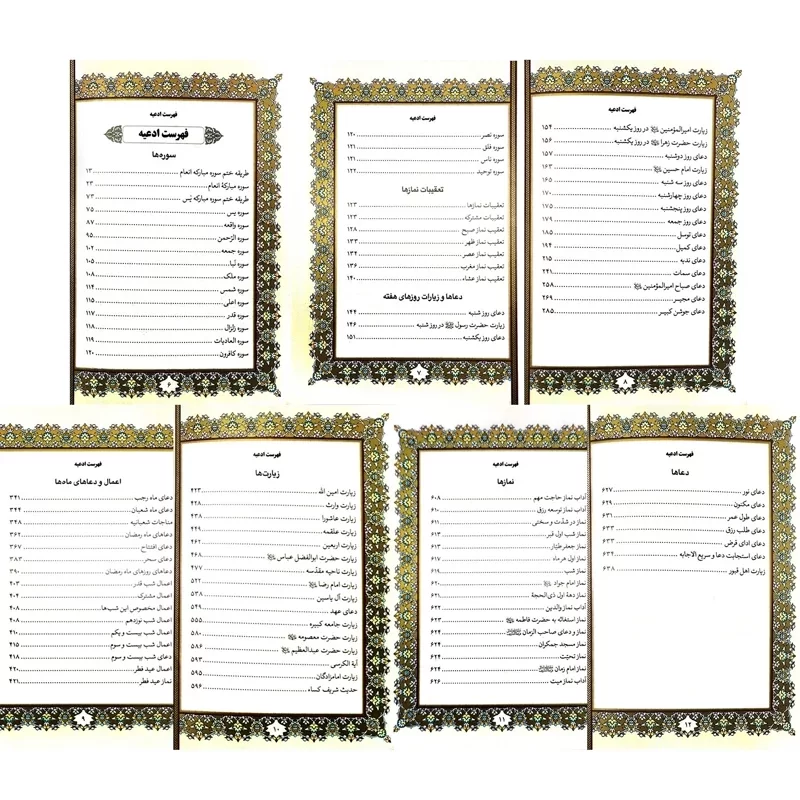 فهرست ادعیه
فهرست ادعیه
سوره‌ها
طریقه ختم سوره مبارکه انعام ۱۳
سوره مبارکهٔ انعام ۲۳
طریقه ختم سوره مبارکه یٰس ۷۳
سوره یس ۷۵
سوره واقعه ۸۷
سوره الرّحمن ۹۵
سوره جمعه ۱۰۲
سوره نبأ ۱۰۵
سوره ملک ۱۰۸
سوره شمس ۱۱۴
سوره اعلی ۱۱۵
سوره قدر ۱۱۷
سوره زلزال ۱۱۸
سوره العادیات ۱۱۹
سوره کافرون ۱۲۰
۶
فهرست ادعیه
سوره نصر ۱۲۰
سوره فلق ۱۲۱
سوره ناس ۱۲۱
سوره توحید ۱۲۲
تعقیبات نمازها
تعقیبات نمازها ۱۲۳
تعقیبات مشترکه ۱۲۳
تعقیب نماز صبح ۱۲۸
تعقیب نماز ظهر ۱۳۳
تعقیب نماز عصر ۱۳۴
تعقیب نماز مغرب ۱۳۶
تعقیب نماز عشاء ۱۴۰
دعاها و زیارات روزهای هفته
دعای روز شنبه ۱۴۴
زیارت حضرت رسول ﷺ در روز شنبه ۱۴۶
دعای روز یکشنبه ۱۵۱
۷
فهرست ادعیه
زیارت امیرالمؤمنین در روز یکشنبه ۱۵۴
زیارت حضرت زهرا در روز یکشنبه ۱۵۶
دعای روز دوشنبه ۱۵۷
زیارت امام حسین ۱۶۳
دعای روز سه شنبه ۱۶۵
دعای روز چهارشنبه ۱۷۰
دعای روز پنجشنبه ۱۷۵
دعای روز جمعه ۱۷۹
دعای توسل ۱۸۵
دعای کمیل ۱۹۴
دعای ندبه ۲۱۵
دعای سمات ۲۴۱
دعای صباح امیرالمؤمنین ۲۵۸
دعای مجیر ۲۶۹
دعای جوشن کبیر ۲۸۵
۸
فهرست ادعیه
اعمال و دعاهای ماه‌ها
دعای ماه رجب ۳۴۱
دعای ماه شعبان ۳۴۴
مناجات شعبانیه ۳۴۸
دعاهای ماه رمضان ۳۶۲
دعای افتتاح ۳۶۷
دعای سحر ۳۸۳
دعاهای روزهای ماه رمضان ۳۹۰
اعمال شب قدر ۴۰۳
اعمال مشترک ۴۰۴
اعمال مخصوص این شب‌ها ۴۰۸
اعمال شب نوزدهم ۴۰۸
اعمال شب بیست و یکم ۴۱۰
اعمال شب بیست و سوم ۴۱۵
دعای شب بیست و سوم ۴۱۸
اعمال عید فطر ۴۲۰
نماز عید فطر ۴۲۱
۹
فهرست ادعیه
زیارت‌ها
زیارت امین الله ۴۲۳
زیارت وارث ۴۲۸
زیارت عاشورا ۴۳۸
زیارت علقمه ۴۴۹
زیارت اربعین ۴۶۲
زیارت حضرت ابوالفضل عباس ۴۶۸
زیارت ناحیه مقدّسه ۴۷۷
زیارت امام رضا ۵۲۲
زیارت آل یاسین ۵۳۸
دعای عهد ۵۴۹
زیارت جامعه کبیره ۵۵۵
زیارت حضرت معصومه ۵۸۰
زیارت حضرت عبدالعظیم ۵۸۶
آیة الکرسی ۵۹۳
زیارت امامزادگان ۵۹۵
حدیث شریف کساء ۵۹۶
۱۰
فهرست ادعیه
نمازها
آداب نماز حاجت مهم ۶۰۸
آداب نماز توسعه رزق ۶۱۰
نماز در شدّت و سختی ۶۱۱
نماز شب اول قبر ۶۱۳
نماز جعفر طیّار ۶۱۳
نماز اول هر ماه ۶۱۷
نماز شب ۶۱۹
نماز امام جواد ۶۲۰
نماز دههٔ اول ذی‌الحجة ۶۲۱
آداب نماز والدین ۶۲۲
نماز استغاثه به حضرت فاطمه ۶۲۳
نماز و دعای صاحب الزمان ۶۲۴
نماز مسجد جمکران ۶۲۴
نماز تحیّت ۶۲۴
نماز امام زمان ۶۲۴
آداب نماز میت ۶۲۶
۱۱
فهرست ادعیه
دعاها
دعای نور ۶۲۷
دعای مکنون ۶۲۹
دعای طول عمر ۶۳۱
دعای طلب رزق ۶۳۳
دعای ادای قرض ۶۳۳
دعای استجابت دعا و سریع الاجابه ۶۳۴
زیارت اهل قبور ۶۳۸
۱۲